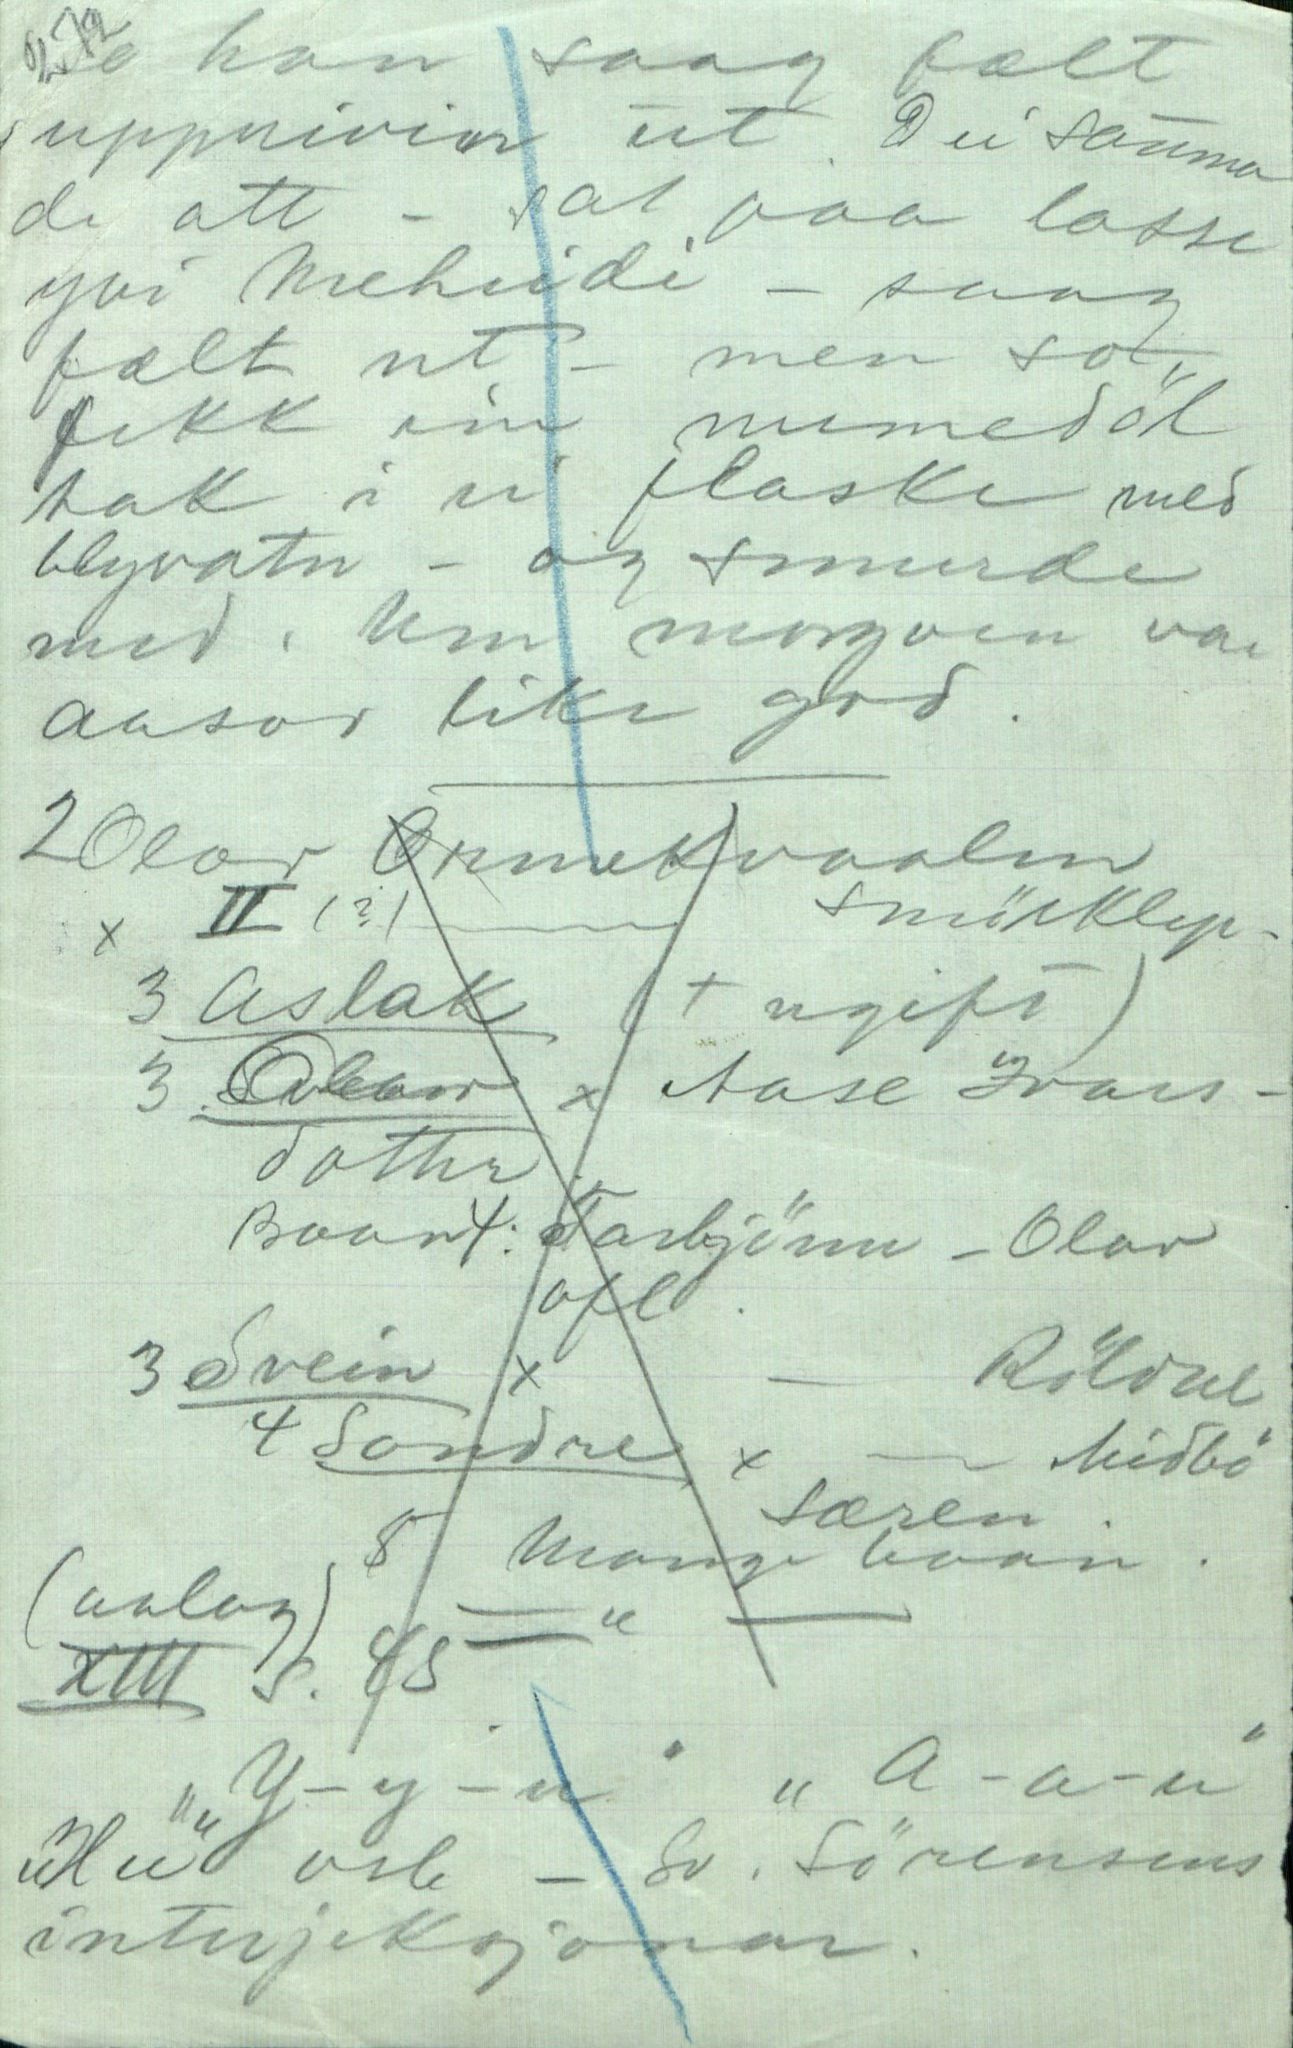 272
so han saag fælt
upprivien ut. Dei sauma
de att - sat paa lasse
yvi Meheidi - saag
fælt ut - men so
fekk ein numedöl
tak i ei flaske med
blyvatn - og smurde
med. Um morgoen var
aasor like god.
2 Olav Ormekvaalen
x II (?) — smörklep-
3 Aslak († ugift)
3 Olav x Aase Ivars-
dotter.
Baan 4: Tarbjönn - Olav
ofl.
3 Svein x — Röldal
4 Sondre x — Midbö
særen.
5 Mange baan.
(aalag)
XIII s. 45 — " —
„Y-y-u" „A-a-u"
„Hu" osb - So. Sörensens
interjeksjonar.